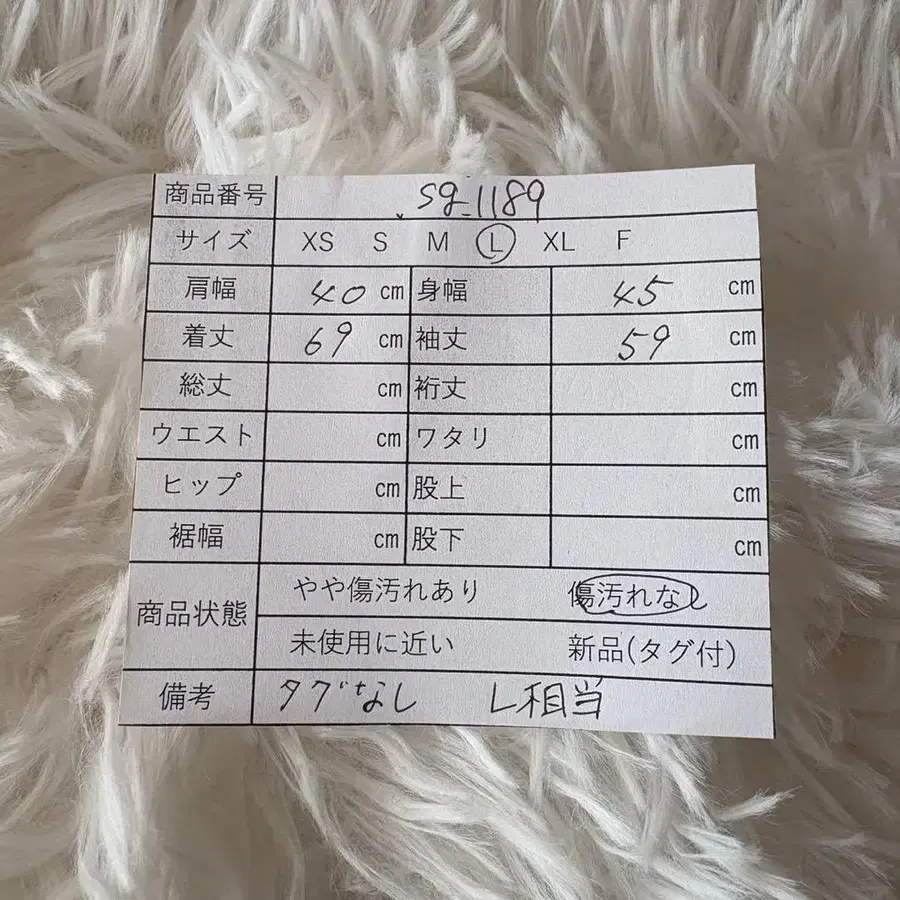 商品番号 sg_1189
サイズ XS S M L XL F
肩幅 40 cm 身幅 45 cm
着丈 69 cm 袖丈 59 cm
総丈 cm 裄丈 cm
ウエスト cm ワタリ cm
ヒップ cm 股上 cm
裾幅 cm 股下 cm
商品状態 やや傷汚れあり 傷汚れなし
未使用に近い 新品(タグ付)
備考 タグなし L相当